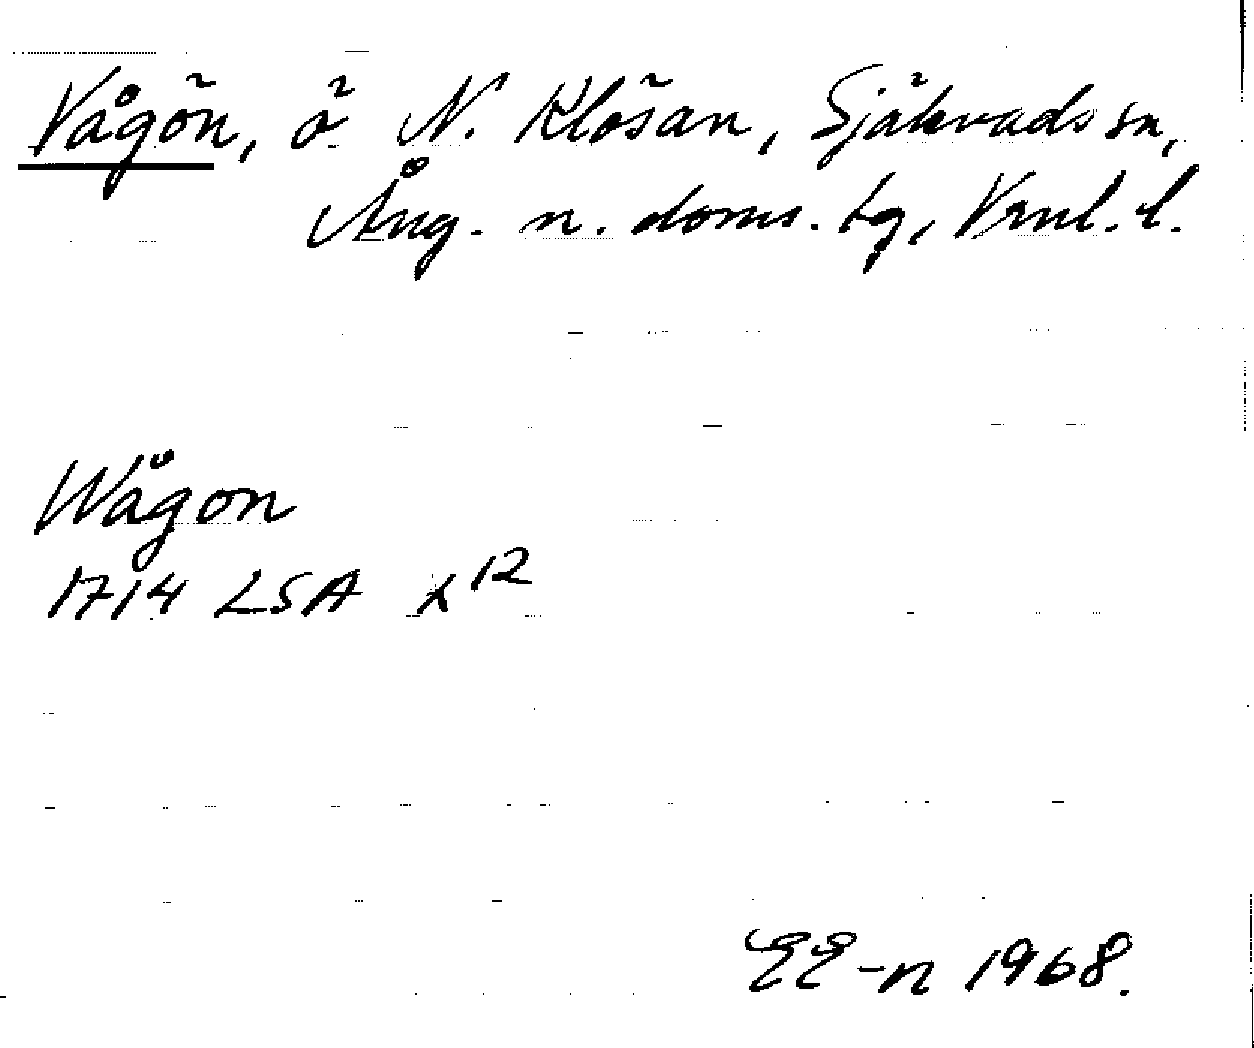 Vågön, ö N. Klosan, Själevads sn,
Ång. n. doms. tg, Vrnl. l.
Wågon
1714 LSA X 12
EE-n 1968.